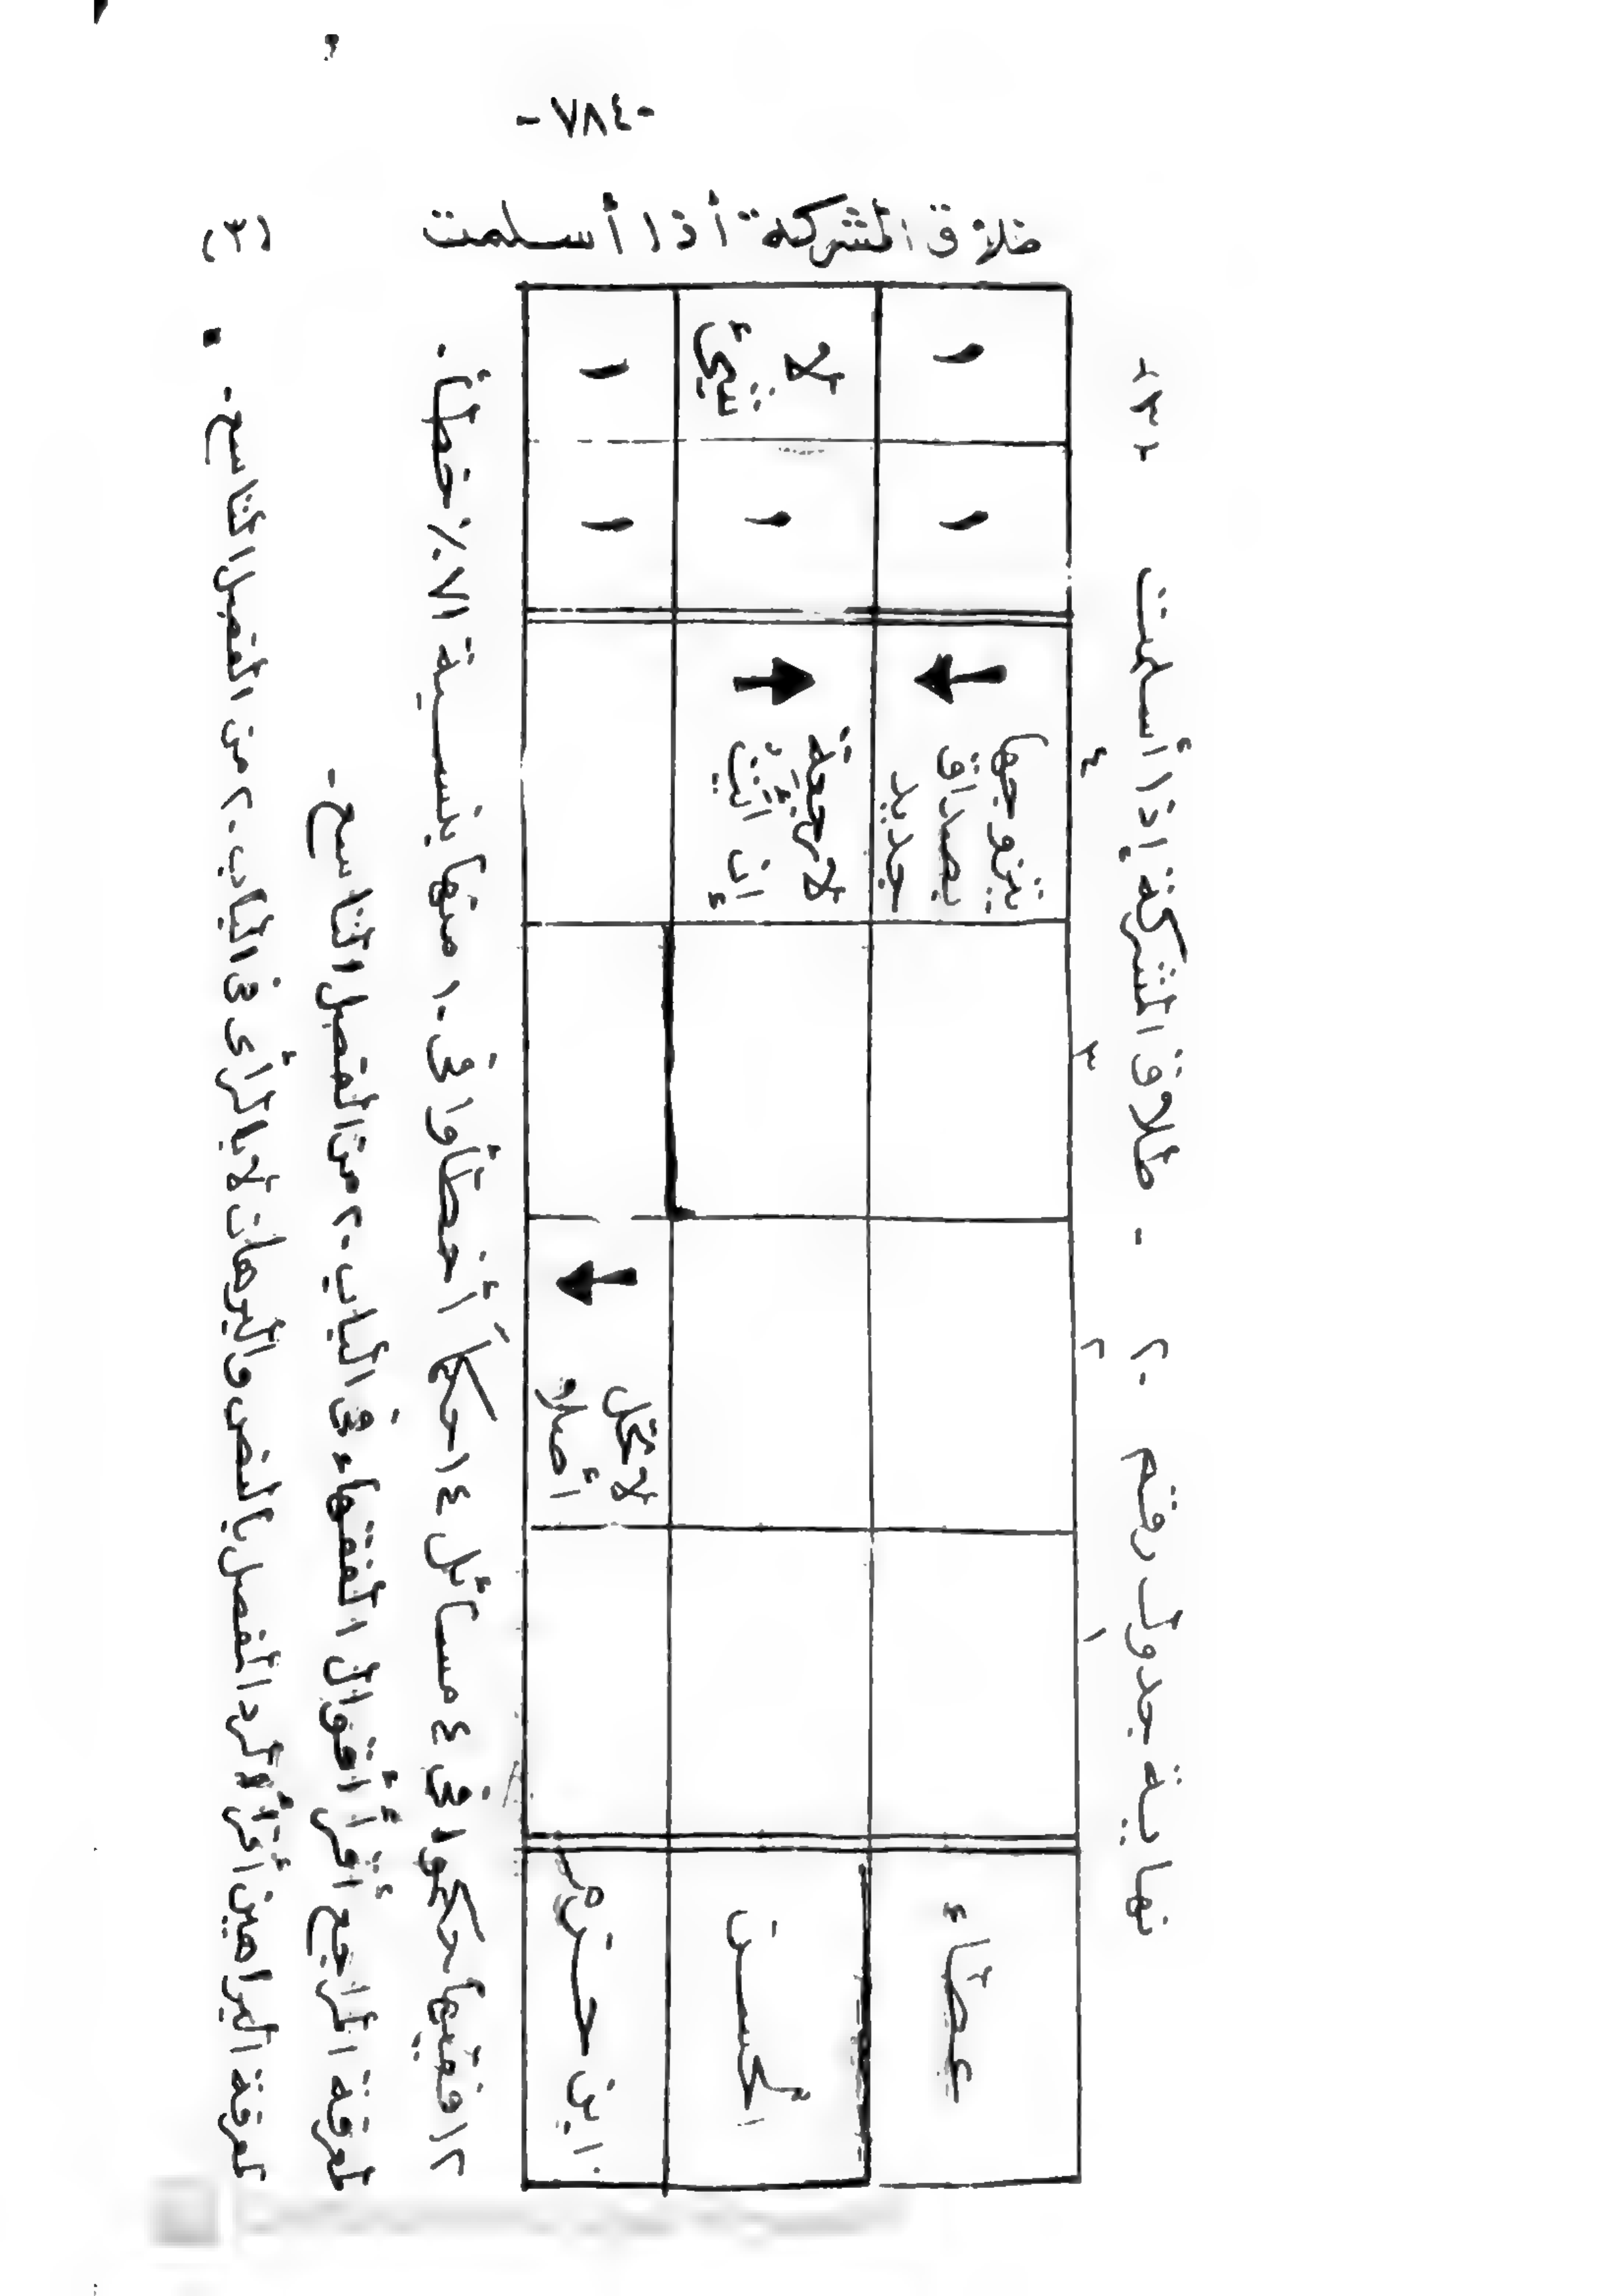 -٧٨٤-
طلاق المشركة أذا أسلمت (٣)
نهاية جدول رقم ٢٠ - طلاق المشركة إذا أسلمت ٢٣٢
١ ٢ ٣ ٤
عطاء يتزوجها بصداق جديد ١ ١
الحسن لا رجعة إن ١ لا شيئ
ابن حزم لا تحل أصلا ١ ١
١٢ فقيها حكموا فى ٤ مسائل ١٤ حكماً أخطأوا فى ١٠ منها بنسبة ٧١٪ خطأ.
لمعرفة المراجع أقرأ أقوال الفقهاء فى الباب ٢٠ من الفصل التاسع.
لمعرفة البراهين أقرأ الرد المفصل بالنص والبرهان لا بالرأى فى الباب ٢٠ من الفصل التاسع.